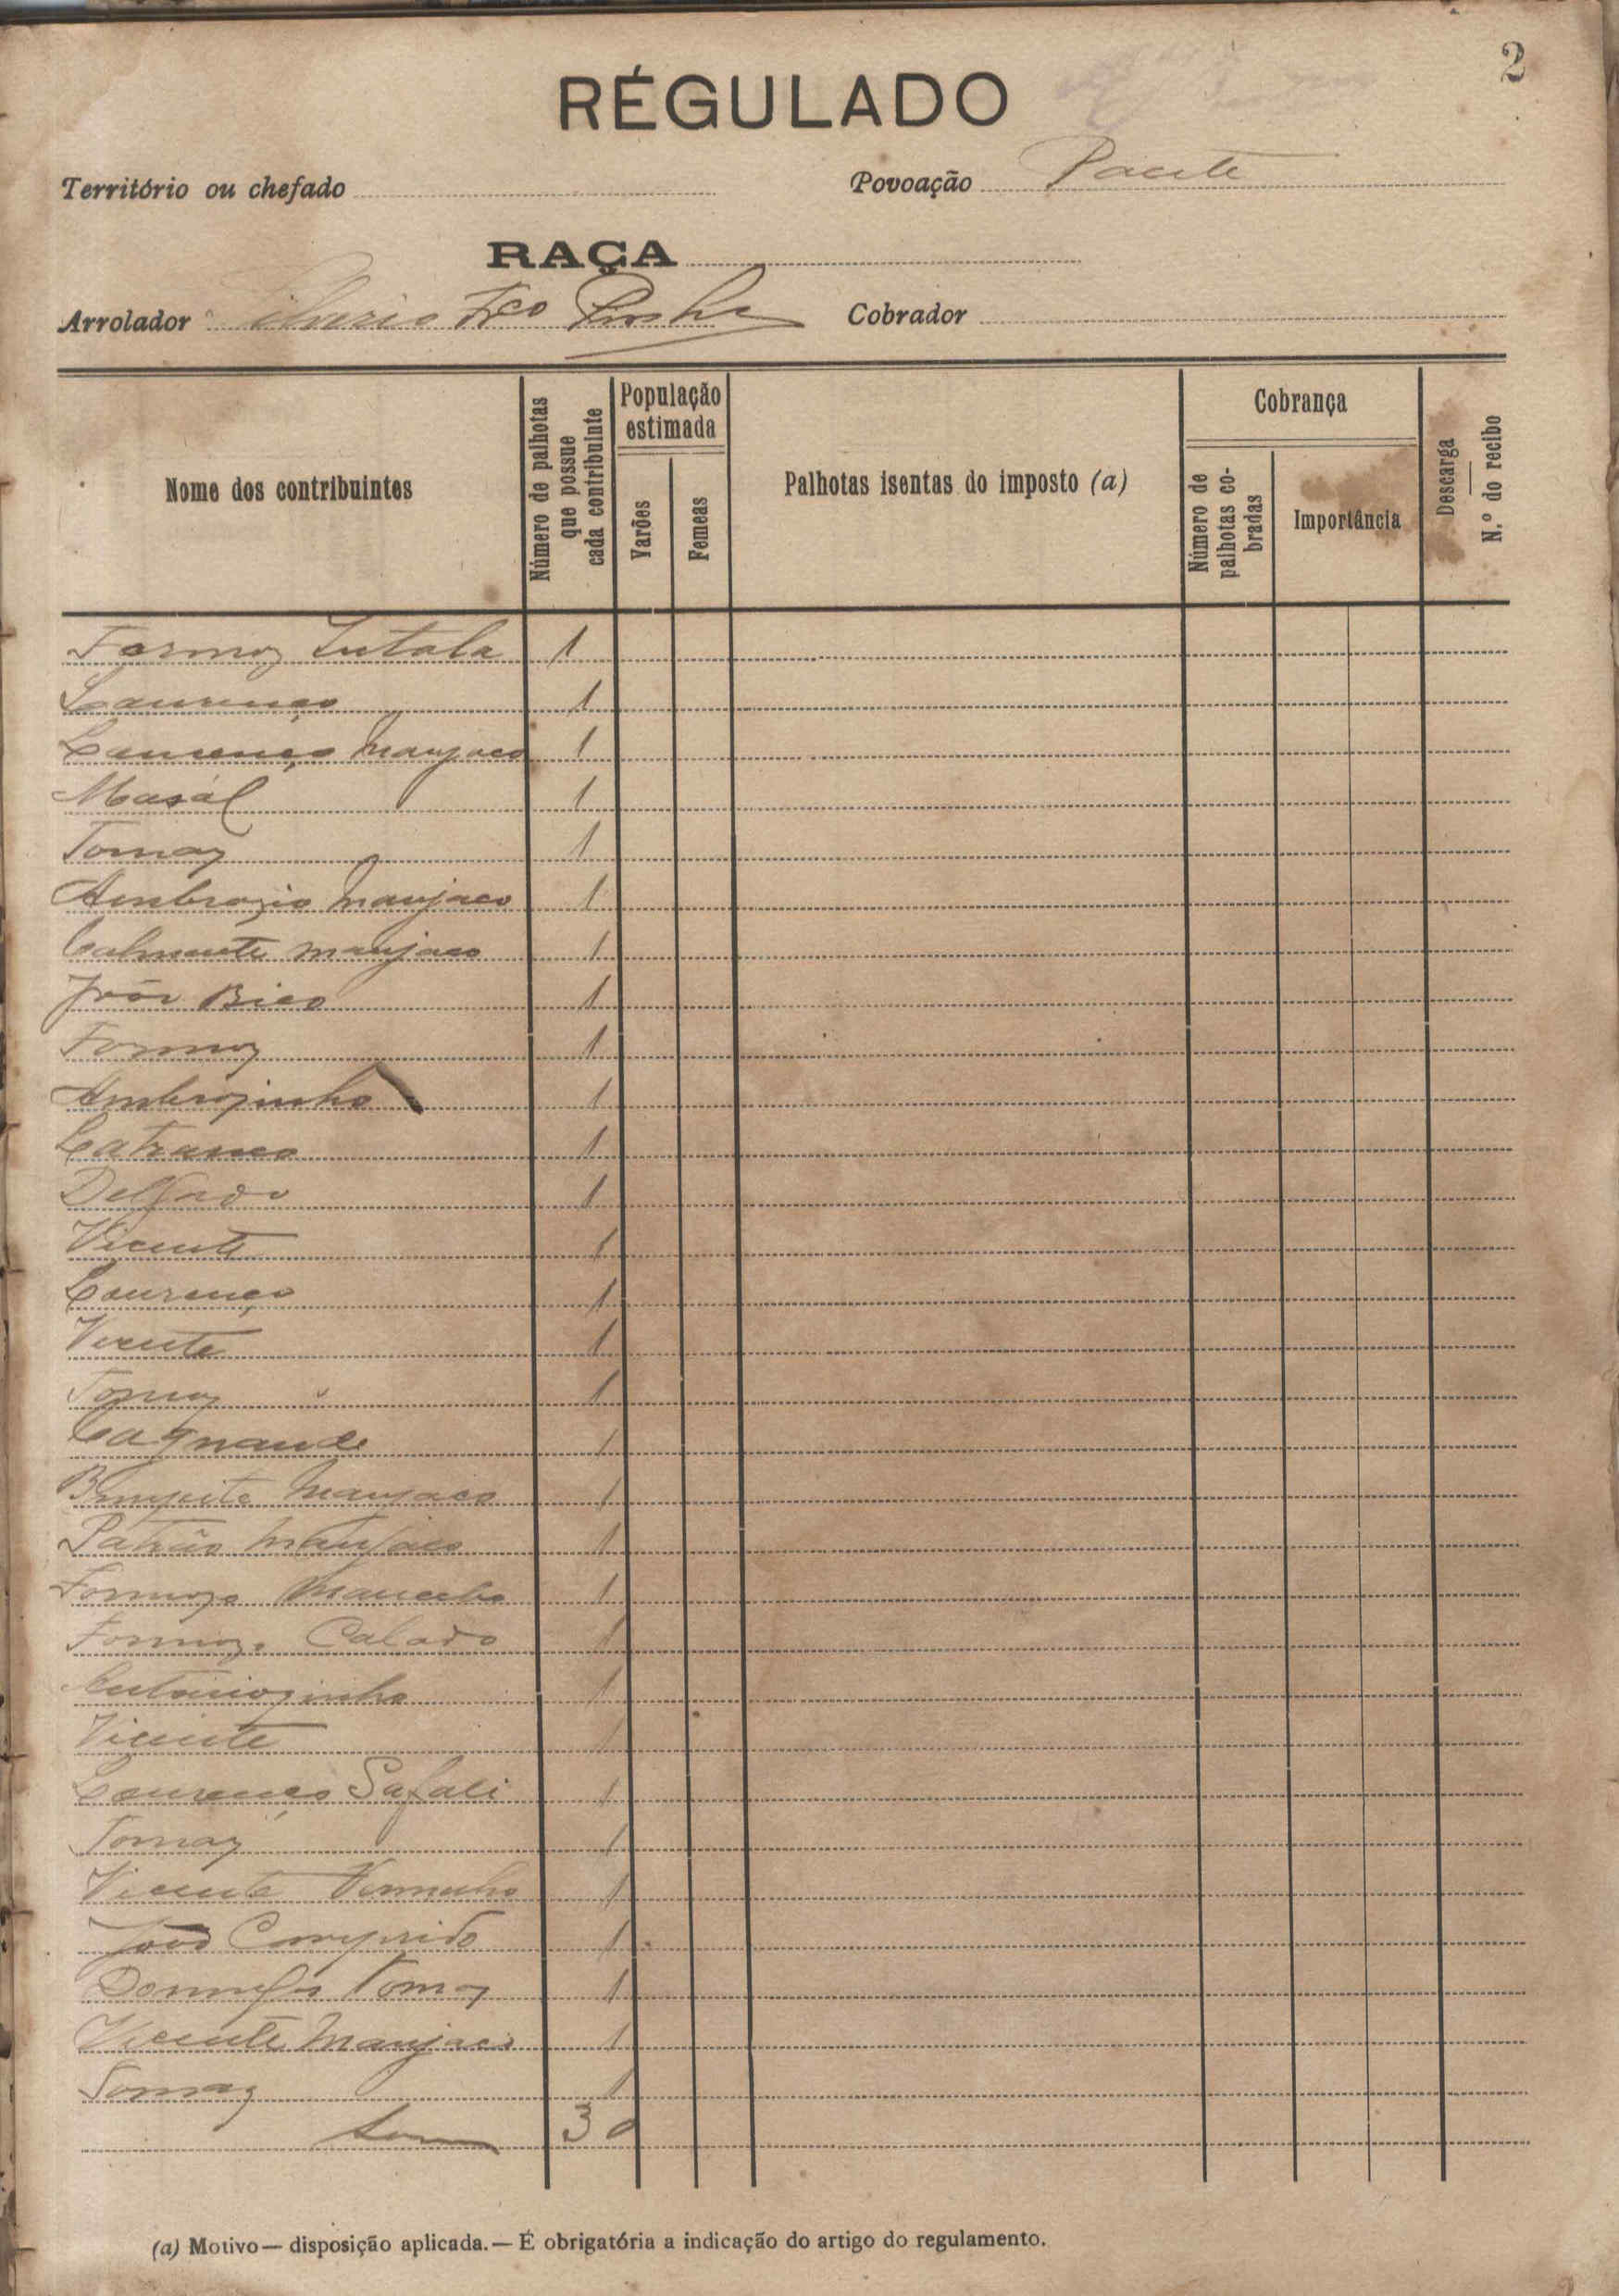 2
RÉGULADO
Território ou chefado
Povoação
RAÇA
Arrolador
Cobrador
Nome dos contribuintes
Número de palhotas que possue cada contribuinte
População estimada
Varões
Femeas
Palhotas isentas do imposto (a)
Cobrança
Número de palhotas cobradas
Importância
Descarga
N.º do recibo
Formoz 1
Lourenço 1
Lourenço Manjaco 1
Masál 1
Tomaz 1
Ambrozio Manjaco 1
manjaco 1
João Bico 1
Formoz 1
Ambrozinho 1
1
Delfado 1
Vicente 1
Lourenço 1
Vicente 1
Tomaz 1
Cagnande 1
Manjaco 1
Patrão Manjaco 1
Formozo 1
Formozo Calado 1
Antoniozinho 1
Vicente 1
Lourenço Safali 1
Tomaz 1
Vicente Vermelho 1
João Comprido 1
Tomaz 1
Vicente Manjaco 1
Tomaz 1
Som 30
(a) Motivo — disposição aplicada. — É obrigatória a indicação do artigo do regulamento.